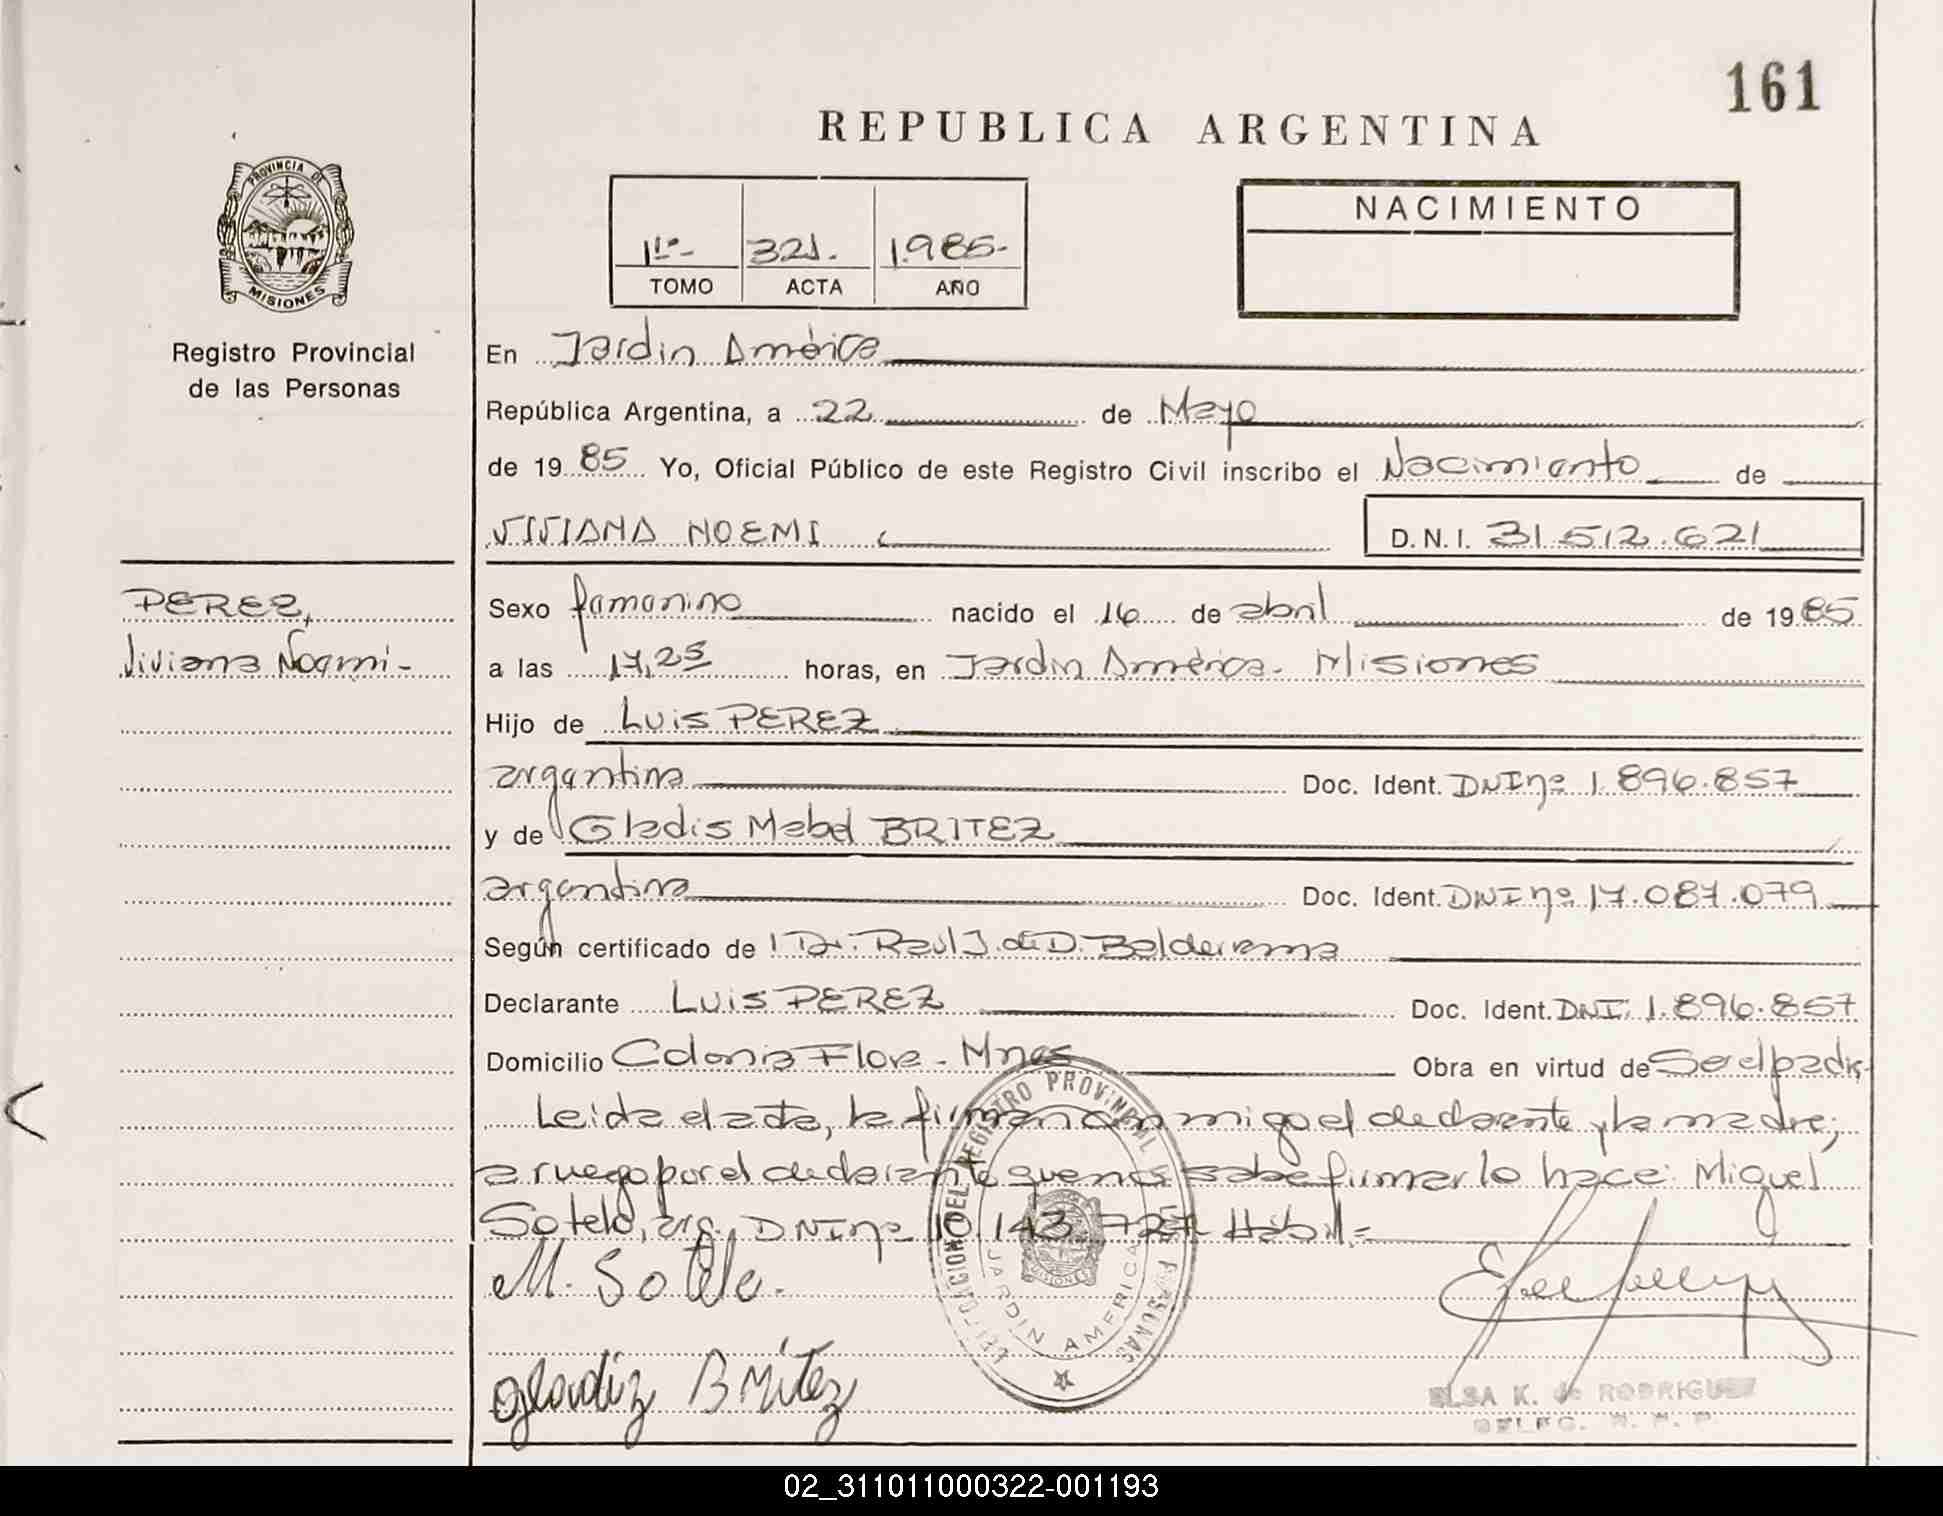 161
REPUBLICA ARGENTINA
PROVINCIA DE
MISIONES
Registro Provincial
de las Personas
1º- 321. 1.985-
TOMO ACTA AÑO
NACIMIENTO
En Jardín América
República Argentina, a 22 de Mayo
de 1985 Yo, Oficial Público de este Registro Civil inscribo el Nacimiento de
VIVIANA NOEMI D.N.I. 31.512.621
PEREZ,
Viviana Noemi-
Sexo femenino nacido el 16 de abril de 1985
a las 17,25 horas, en Jardín América- Misiones
Hijo de Luis PEREZ
argentina Doc. Ident. DNI nº 1.896.857
y de Gladis Mabel BRITEZ
argentina Doc. Ident. DNI nº 17.087.079
Según certificado de Dr. Raul J. de D. Balderrama
Declarante Luis PEREZ Doc. Ident. DNI. 1.896.857
Domicilio Colonia Flora - Mnes Obra en virtud de Ser el padre-
Leída el acta, la firman conmigo el declarante y la madre;
a ruego por el declarante que no sabe firmar lo hace: Miguel
Sotelo, arg. DNI nº 10.143.727 Hábil=
M. Sotelo.
Gladiz Britez
REGISTRO PROVINCIAL DE LAS PERSONAS
JARDIN AMERICA
MISIONES
ELSA K. de RODRIGUEZ
DELEG. R. P. P.
02_311011000322-001193